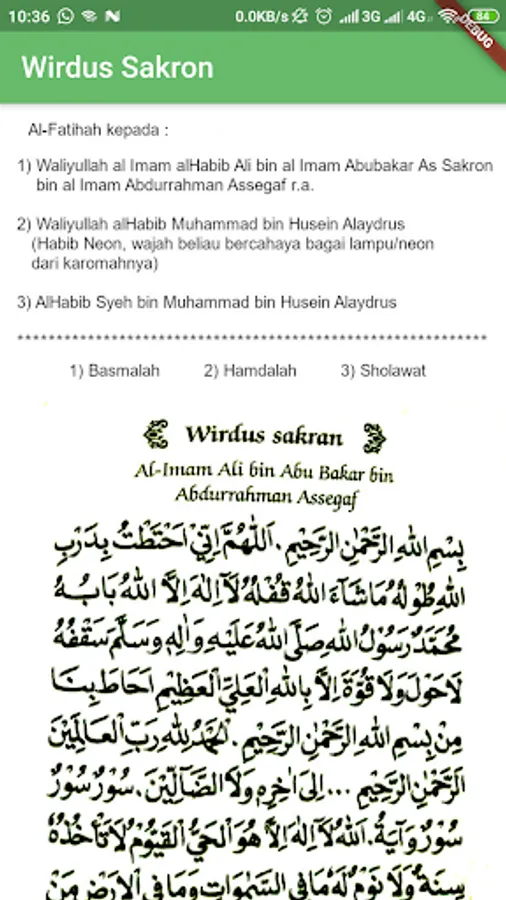 10:36 0.0KB/s 3G 4G 84
DEBUG
Wirdus Sakron
Al-Fatihah kepada :
1) Waliyullah al Imam alHabib Ali bin al Imam Abubakar As Sakron
bin al Imam Abdurrahman Assegaf r.a.
2) Waliyullah alHabib Muhammad bin Husein Alaydrus
(Habib Neon, wajah beliau bercahaya bagai lampu/neon
dari karomahnya)
3) AlHabib Syeh bin Muhammad bin Husein Alaydrus
****************************************************************
1) Basmalah 2) Hamdalah 3) Sholawat
Wirdus sakran
Al-Imam Ali bin Abu Bakar bin
Abdurrahman Assegaf
بِسْمِ اللهِ الرَّحْمٰنِ الرَّحِيْمِ. اَللّٰهُمَّ اِنِّيْ احْتَطْتُ بِدَرْبِ
اللهِ طُوْلُهُ مَا شَآءَ اللهُ قُفْلُهُ لَآ اِلٰهَ اِلَّا اللهُ بَابُهُ
مُحَمَّدٌ رَسُوْلُ اللهِ صَلَّى اللهُ عَلَيْهِ وَاٰلِهِ وَسَلَّمَ سَقْفُهُ
لَاحَوْلَ وَلَا قُوَّةَ اِلَّا بِاللهِ الْعَلِيِّ الْعَظِيْمِ اَحَاطَ بِنَا
مِنْ بِسْمِ اللهِ الرَّحْمٰنِ الرَّحِيْمِ. اَلْحَمْدُ لِلهِ رَبِّ الْعَالَمِيْنَ
اَلرَّحْمٰنِ الرَّحِيْمِ ... اِلَى اٰخِرِهِ وَلَا الضَّآلِّيْنَ. سُوْرٌ سُوْرٌ
سُوْرٌ وَآيَةُ. اَللهُ لَآ اِلٰهَ اِلَّا هُوَ الْحَيُّ الْقَيُّوْمُ لَا تَأْخُذُهُ
سِنَةٌ وَلَا نَوْمٌ لَهُ مَا فِى السَّمٰوَاتِ وَمَا فِى الْاَرْضِ مَنْ